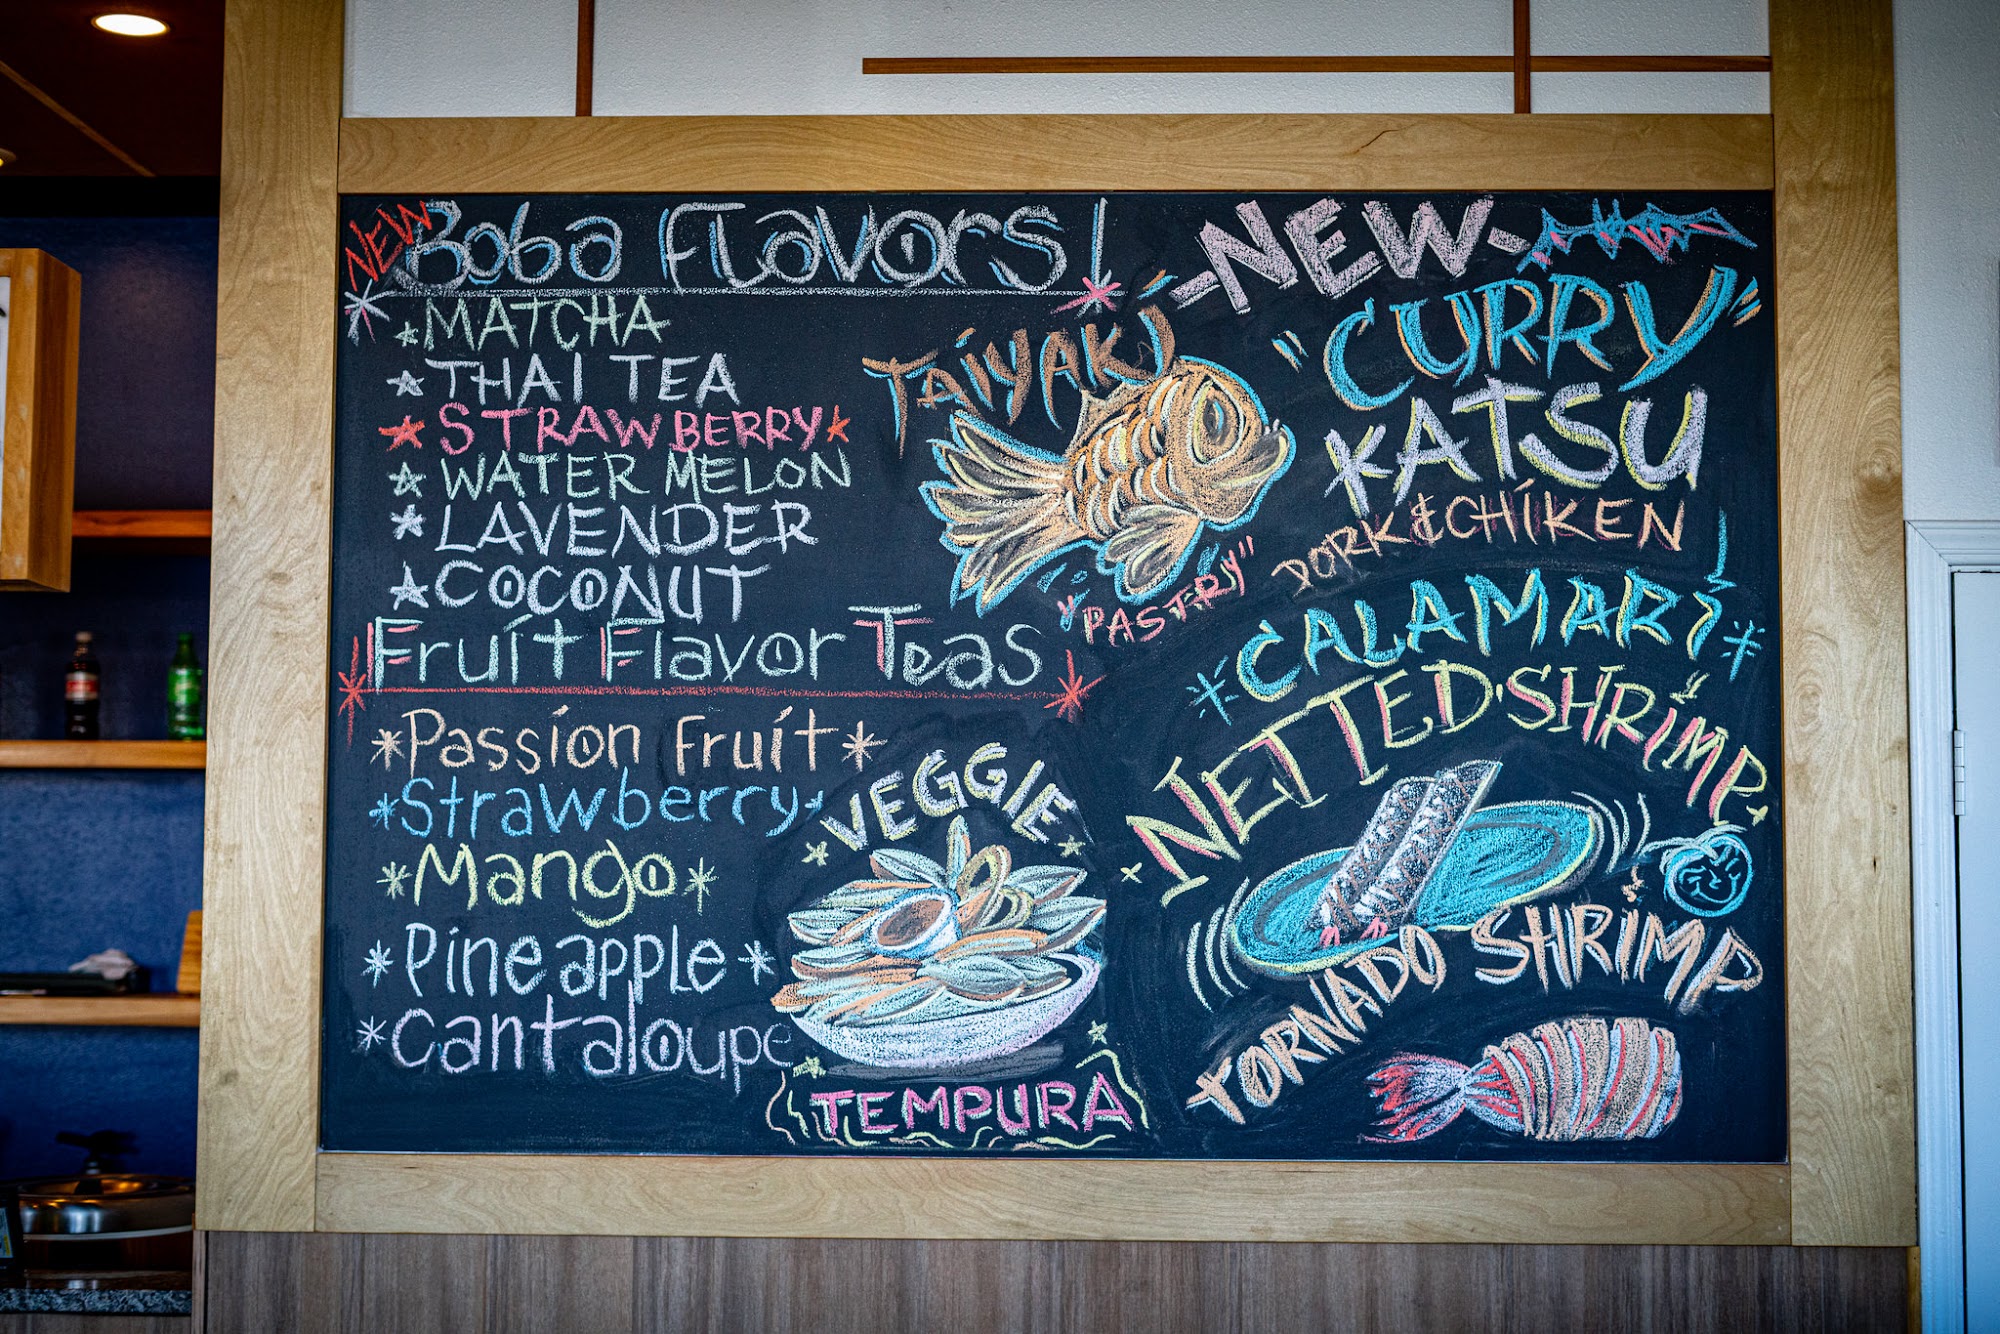 NEW
Boba Flavors!
MATCHA
THAI TEA
STRAWBERRY
WATER MELON
LAVENDER
COCONUT
Fruit Flavor Teas
Passion Fruit
Strawberry
Mango
Pineapple
Cantaloupe
TAiYAKi
"PASTRY"
VEGGIE
TEMPURA
-NEW-
"CURRY"
KATSU
PORK & CHiKEN
CALAMARi
NETTED SHRiMP
TORNADO SHRiMP